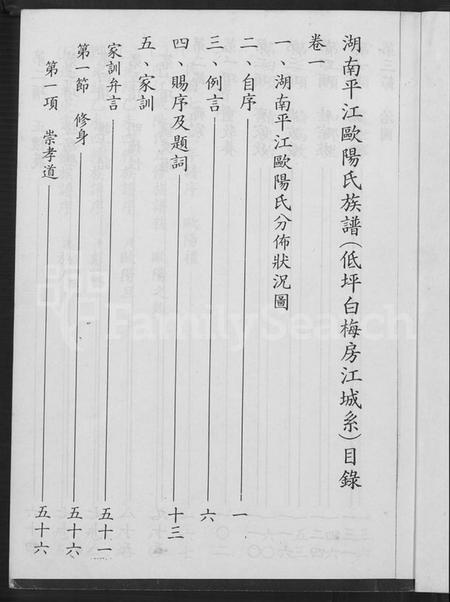 湖南平江歐陽氏族譜(低坪白梅房江城系)目錄
卷一
一、湖南平江歐陽氏分佈狀況圖
二、自序 一
三、例言 六
四、賜序及題詞 十三
五、家訓
家訓弁言 五十一
第一節 修身 五十六
第一項 崇孝道 五十六
FamilySearch